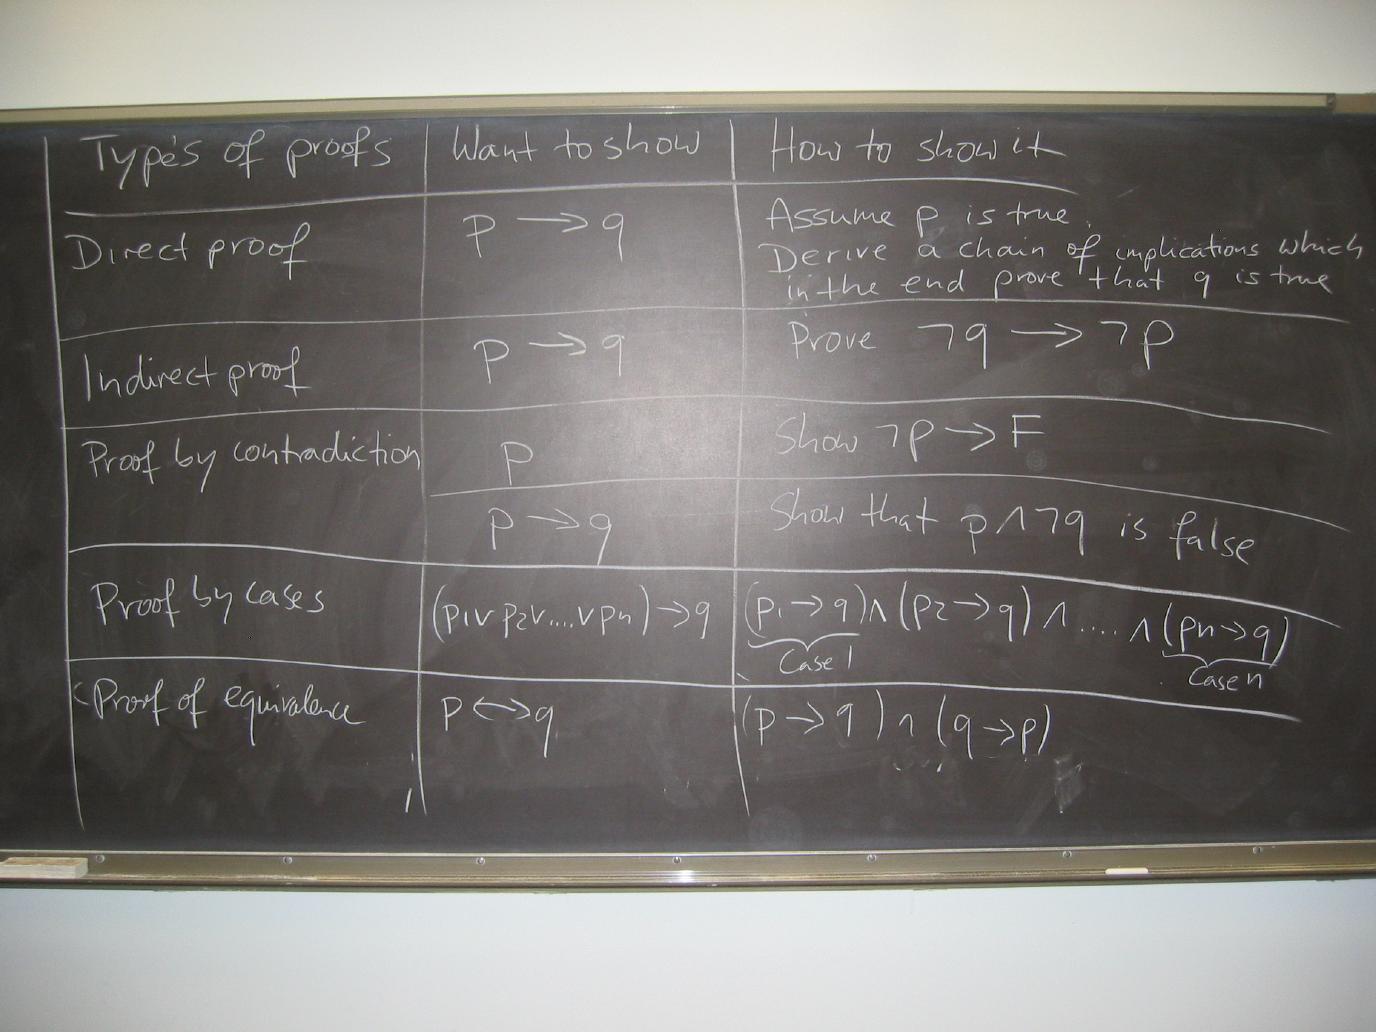 Types of proofs Want to show How to show it
Direct proof p → q Assume p is true.
Derive a chain of implications which
in the end prove that q is true
Indirect proof p → q Prove ¬q → ¬p
Proof by contradiction p Show ¬p → F
p → q Show that p ∧ ¬q is false
Proof by cases (p1 ∨ p2 ∨ .... ∨ pn) → q (p1 → q) ∧ (p2 → q) ∧ .... ∧ (pn → q)
Case 1 Case n
Proof of equivalence p ↔ q (p → q) ∧ (q → p)